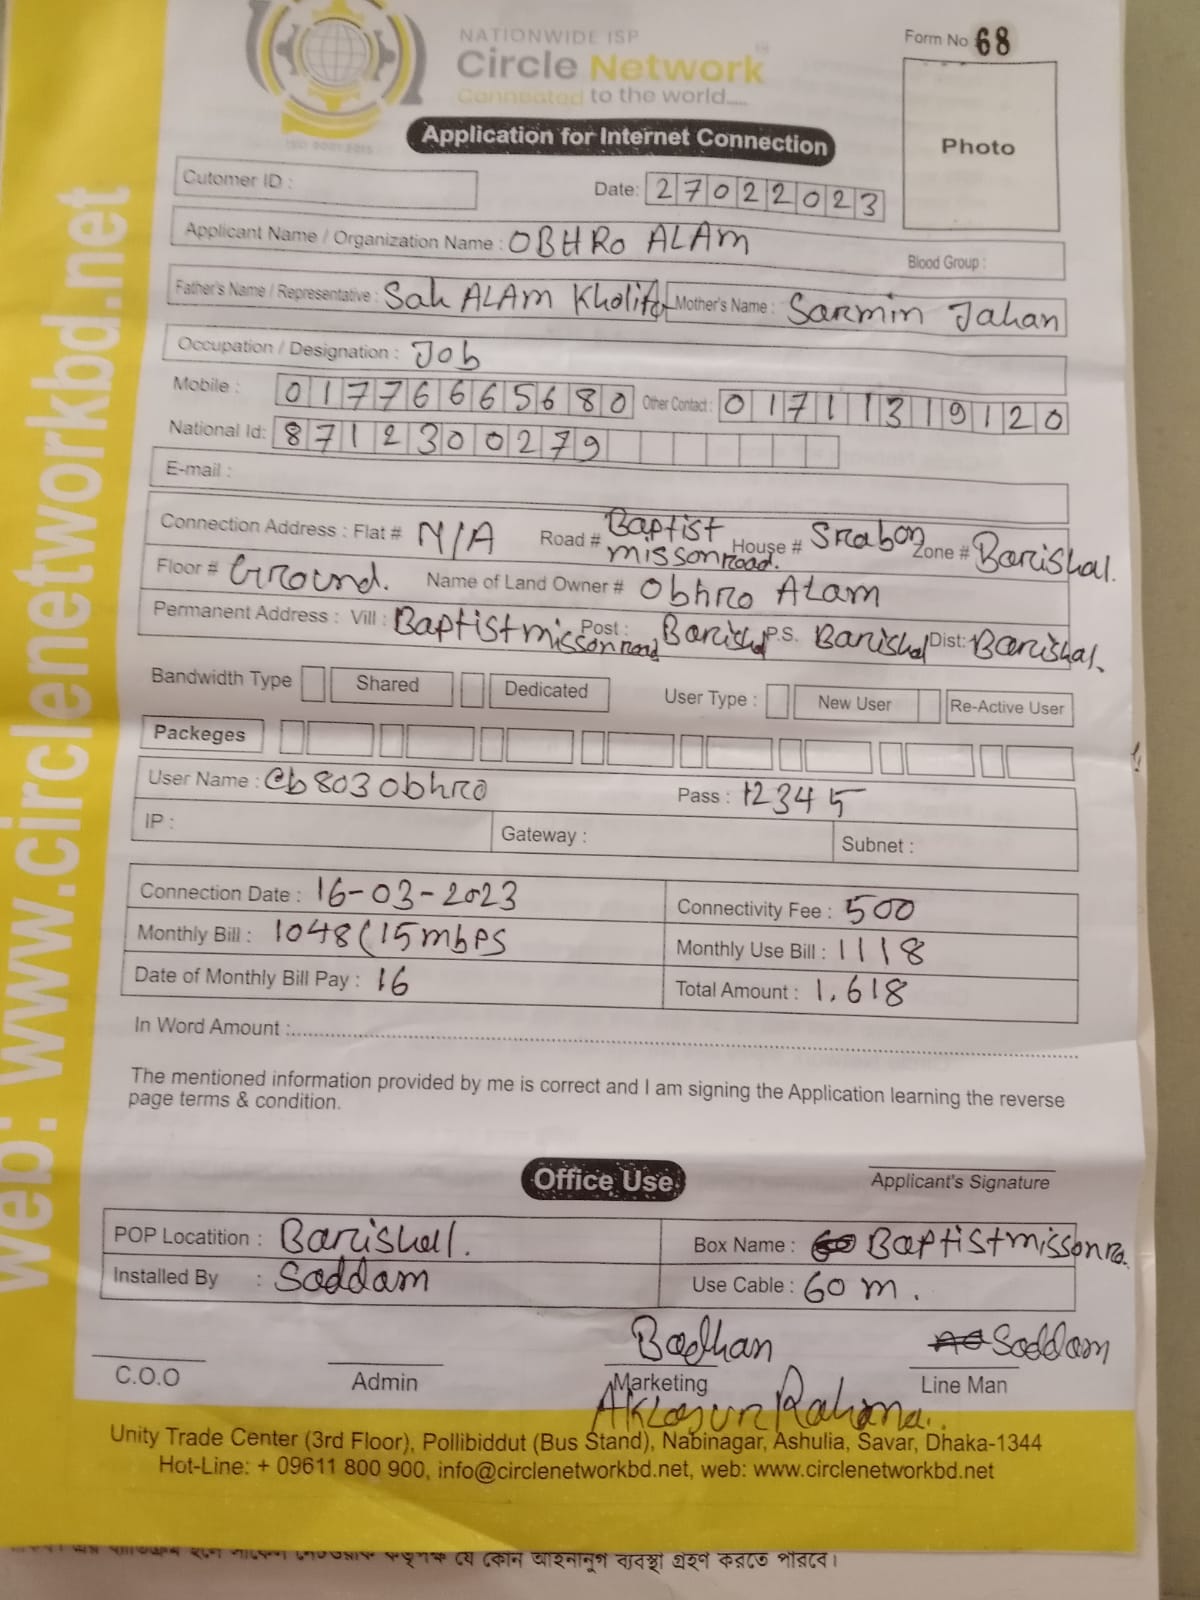 NATIONWIDE ISP
Circle Network
Connected to the world.....
Form No 68
Application for Internet Connection
Photo
Cutomer ID :
Date: 27022023
Applicant Name / Organization Name : OBHRO ALAM
Blood Group :
Father's Name / Representative : Sah ALAM Kholifa Mother's Name : Sarmin Jahan
Occupation / Designation : Job
Mobile : 01776665680 Other Contact : 01711319120
National Id: 8712300279
E-mail :
Connection Address : Flat # N/A Road # Baptist missonroad. House # Srabon Zone # Barishal.
Floor # Ground. Name of Land Owner # Obhro ALam
Permanent Address : Vill : Baptistmissonroad Post : Barishal P.S. Barishal Dist: Barishal.
Bandwidth Type Shared Dedicated User Type : New User Re-Active User
Packeges
User Name : cb803obhro Pass : 12345
IP : Gateway : Subnet :
Connection Date : 16-03-2023 Connectivity Fee : 500
Monthly Bill : 1048(15mbPS Monthly Use Bill : 1118
Date of Monthly Bill Pay : 16 Total Amount : 1,618
In Word Amount :
The mentioned information provided by me is correct and I am signing the Application learning the reverse
page terms & condition.
Applicant's Signature
Office Use
POP Locatition : Barishall. Box Name : Baptistmissonro.
Installed By : Saddam Use Cable : 60 m.
Badhan Saddam
C.O.O Admin Marketing Line Man
Rahana.
Unity Trade Center (3rd Floor), Pollibiddut (Bus Stand), Nabinagar, Ashulia, Savar, Dhaka-1344
Hot-Line: + 09611 800 900, info@circlenetworkbd.net, web: www.circlenetworkbd.net
web: www.circlenetworkbd.net
যে কোন আইনানুগ ব্যবস্থা গ্রহণ করতে পারবে।